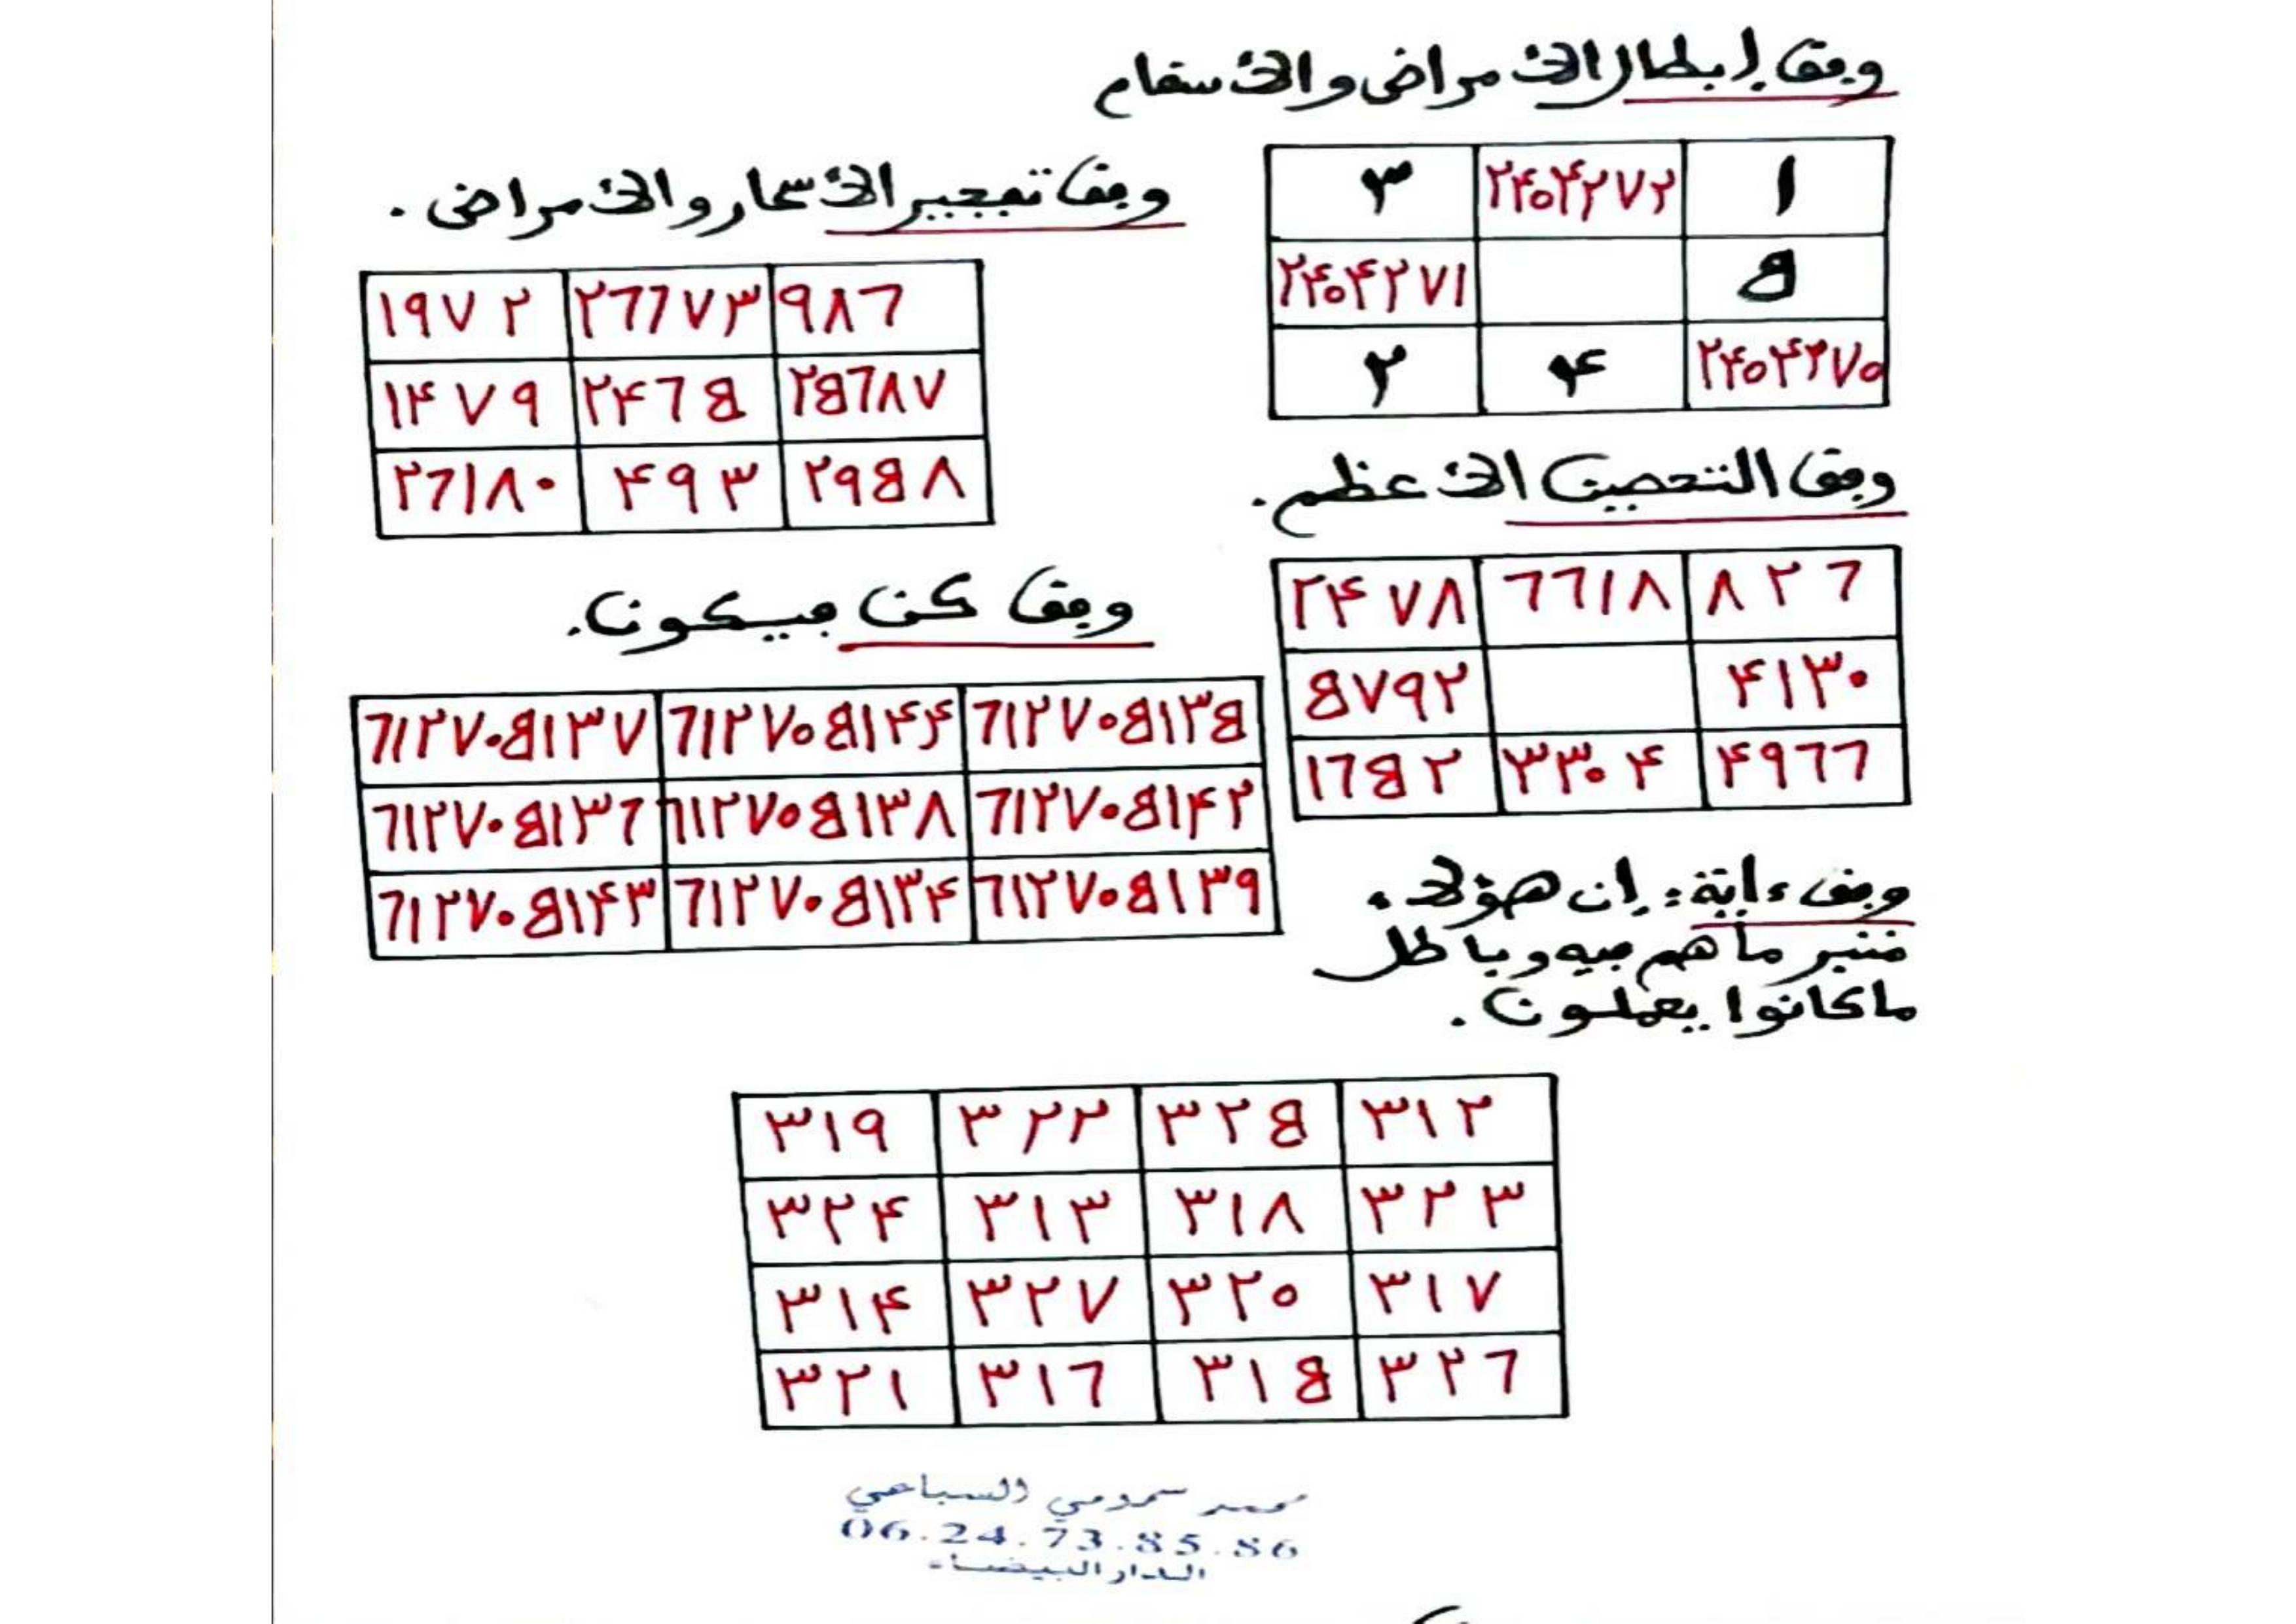 وفق إبطال الأمراض والأسقام
٣ ٢٤٠٤٢٧٢ ١
٢٤٠٤٢٧١ ٥
٢ ٤ ٢٤٠٤٢٧٠
وفق تفجير الأسحار والأمراض.
١٩٧٢ ٢٦٦٧٣ ٩٨٦
١٤٧٩ ٢٤٦٥ ٢٥٦٨٧
٢٦١٨٠ ٤٩٣ ٢٩٥٨
وفق التحصين الأعظم.
٢٤٧٨ ٦٦١٨ ٨٢٦
٥٧٩٢ ٤١٣٠
١٦٥٢ ٣٣٠٤ ٤٩٦٦
وفق كن فيكون.
٦١٢٧٠٥١٣٧ ٦١٢٧٠٥١٤٤ ٦١٢٧٠٥١٣٥
٦١٢٧٠٥١٣٦ ٦١٢٧٠٥١٣٨ ٦١٢٧٠٥١٤٢
٦١٢٧٠٥١٤٣ ٦١٢٧٠٥١٣٤ ٦١٢٧٠٥١٣٩
وفق ءاية: إن هؤلاء
متبر ما هم فيه وباطل
ما كانوا يعملون.
٣١٩ ٣٢٢ ٣٢٥ ٣١٢
٣٢٤ ٣١٣ ٣١٨ ٣٢٣
٣١٤ ٣٢٧ ٣٢٠ ٣١٧
٣٢١ ٣١٦ ٣١٥ ٣٢٦
محمد السباعي
06.24.73.85.86
الدار البيضاء